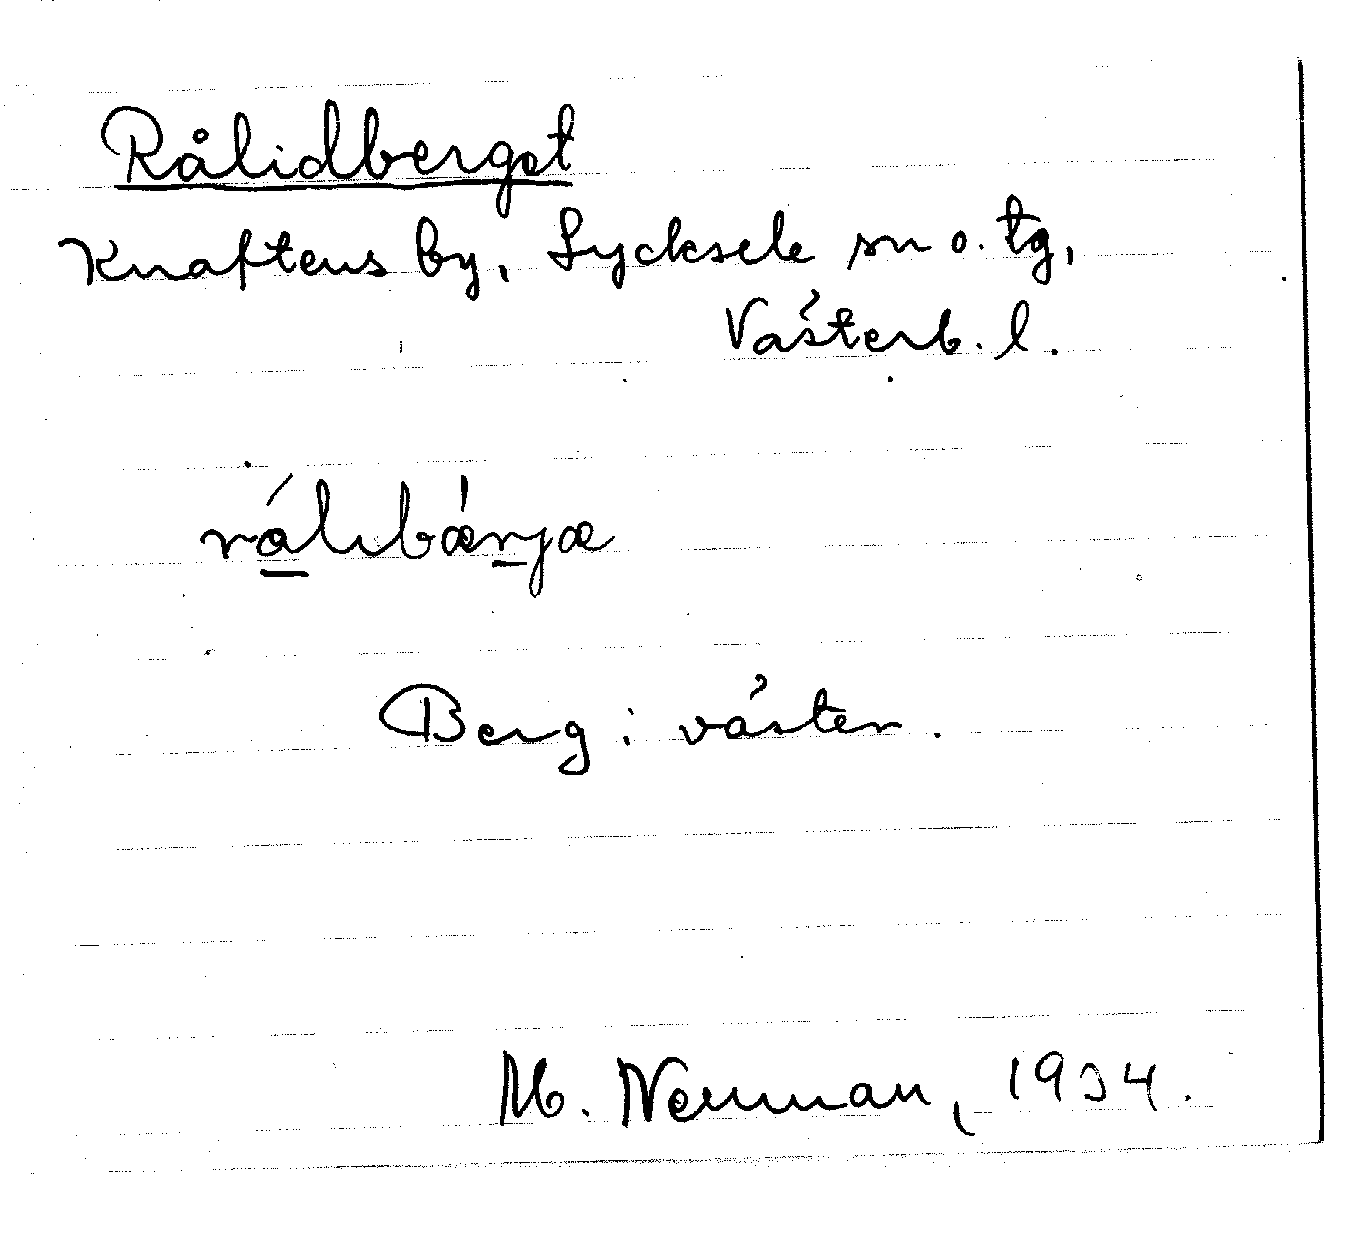 Rålidberget
Knaftens by, Lycksele sn o. tg,
Västerb. l.
rálıbǽrjæ
Berg i väster.
M. Neuman, 1934.